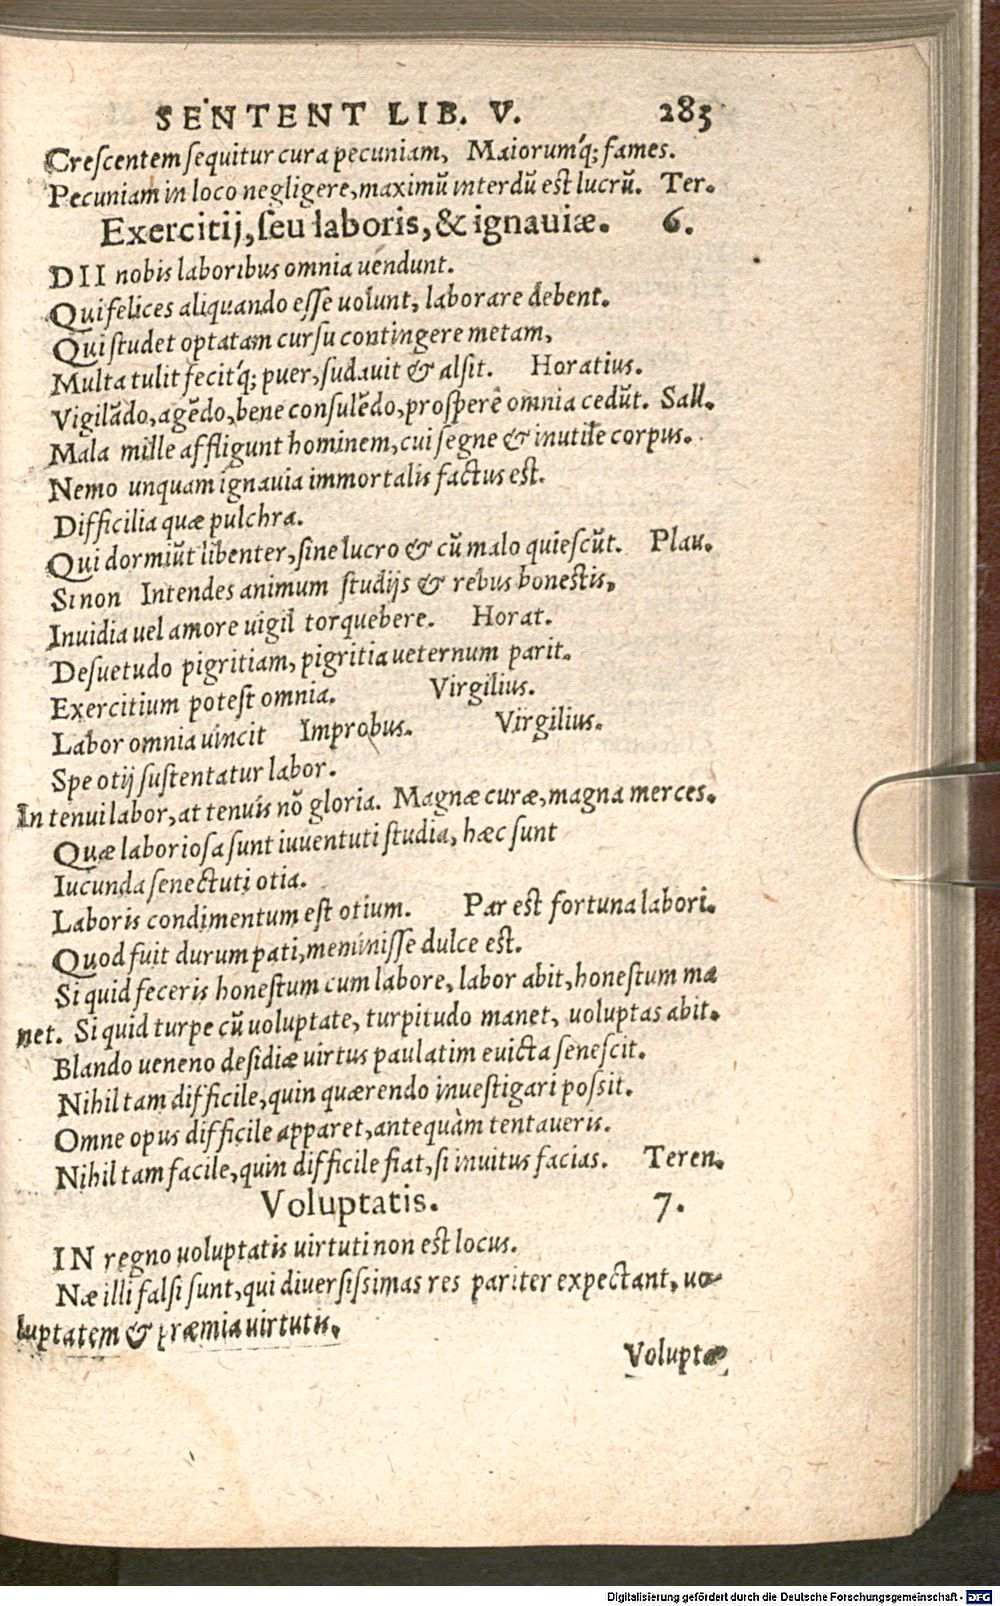 SENTENT LIB. V. 285
Crescentem sequitur cura pecuniam, Maiorumq́; fames.
Pecuniam in loco negligere, maximũ interdũ est lucrũ. Ter.
Exercitij, seu laboris, & ignauiæ. 6.
DII nobis laboribus omnia uendunt.
Qui felices aliquando esse uolunt, laborare debent.
Qui studet optatam cursu contingere metam,
Multa tulit fecitq́; puer, sudauit & alsit. Horatius.
Vigilãdo, agẽdo, bene consulẽdo, prosperè omnia cedũt. Sall.
Mala mille affligunt hominem, cui segne & inutile corpus.
Nemo unquam ignauia immortalis factus est.
Difficilia quæ pulchra.
Qui dormiũt libenter, sine lucro & cũ malo quiescũt. Plau.
Si non Intendes animum studijs & rebus honestis,
Inuidia uel amore uigil torquebere. Horat.
Desuetudo pigritiam, pigritia ueternum parit.
Exercitium potest omnia. Virgilius.
Labor omnia uincit Improbus. Virgilius.
Spe otij sustentatur labor.
In tenui labor, at tenuis nõ gloria. Magnæ curæ, magna merces.
Quæ laboriosa sunt iuuentuti studia, hæc sunt
Iucunda senectuti otia.
Laboris condimentum est otium. Par est fortuna labori.
Quod fuit durum pati, meminisse dulce est.
Si quid feceris honestum cum labore, labor abit, honestum ma
net. Si quid turpe cũ uoluptate, turpitudo manet, uoluptas abit.
Blando ueneno desidiæ uirtus paulatim euicta senescit.
Nihil tam difficile, quin quærendo inuestigari possit.
Omne opus difficile apparet, antequàm tentaueris.
Nihil tam facile, quin difficile fiat, si inuitus facias. Teren.
Voluptatis. 7.
IN regno uoluptatis uirtuti non est locus.
Næ illi falsi sunt, qui diuersissimas res pariter expectant, uo-
luptatem & præmia uirtutis.
Voluptæ
Digitalisierung gefördert durch die Deutsche Forschungsgemeinschaft - DFG